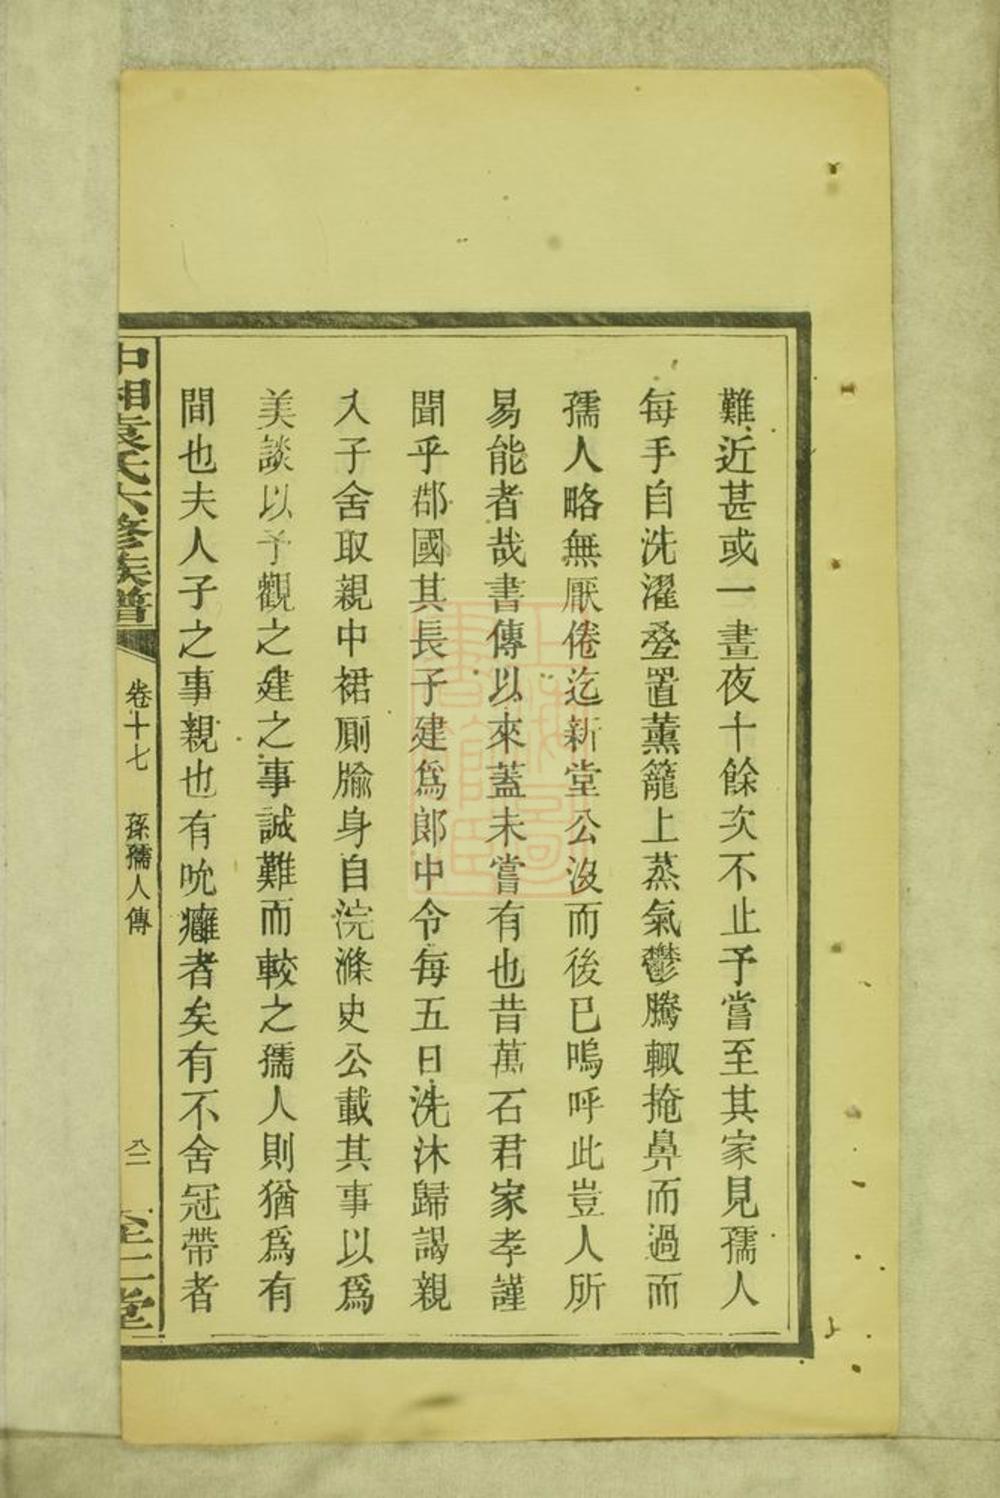 難近甚或一晝夜十餘次不止予嘗至其家見孺人
每手自洗濯叠置薰籠上蒸氣鬱騰輙掩鼻而過而
孺人略無厭倦迄新堂公沒而後已嗚呼此豈人所
易能者哉書傳以來蓋未嘗有也昔萬石君家孝謹
聞乎郡國其長子建爲郎中令每五日洗沐歸謁親
入子舍取親中裙厠牏身自浣滌史公載其事以爲
美談以予觀之建之事誠難而較之孺人則猶爲有
間也夫人子之事親也有吮癰者矣有不舍冠帶者
中湘袁氏六修族譜
卷十七 孫孺人傳
八二 至仁堂